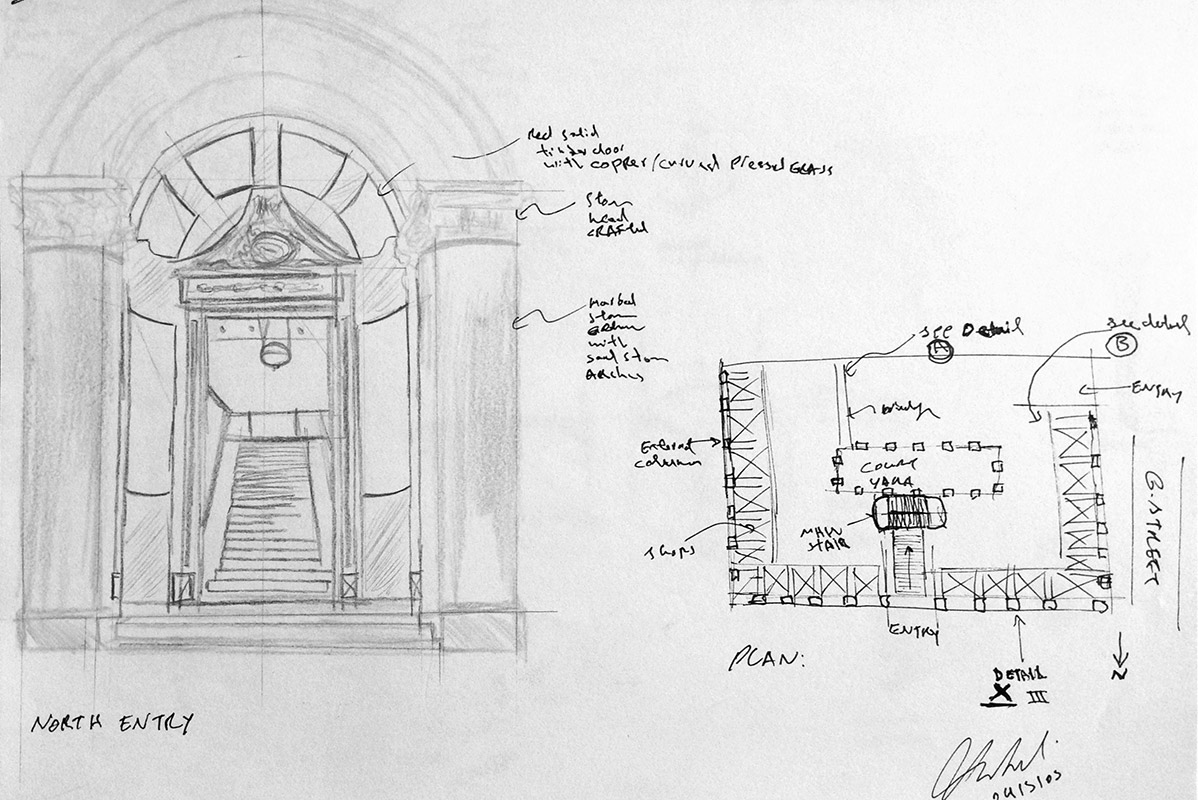 Red solid
timber door
with copper/curved Pressed GLASS
Stone
head
CRAFTed
Marbel
Stone
with
sand stone
Arches
NORTH ENTRY
see Detail
A
see detail
B
ENTRY
bridge
External
column
COURT
YARD
MAIN
STAIR
shops
B.STREET
ENTRY
PLAN:
N
DETAIL
X III